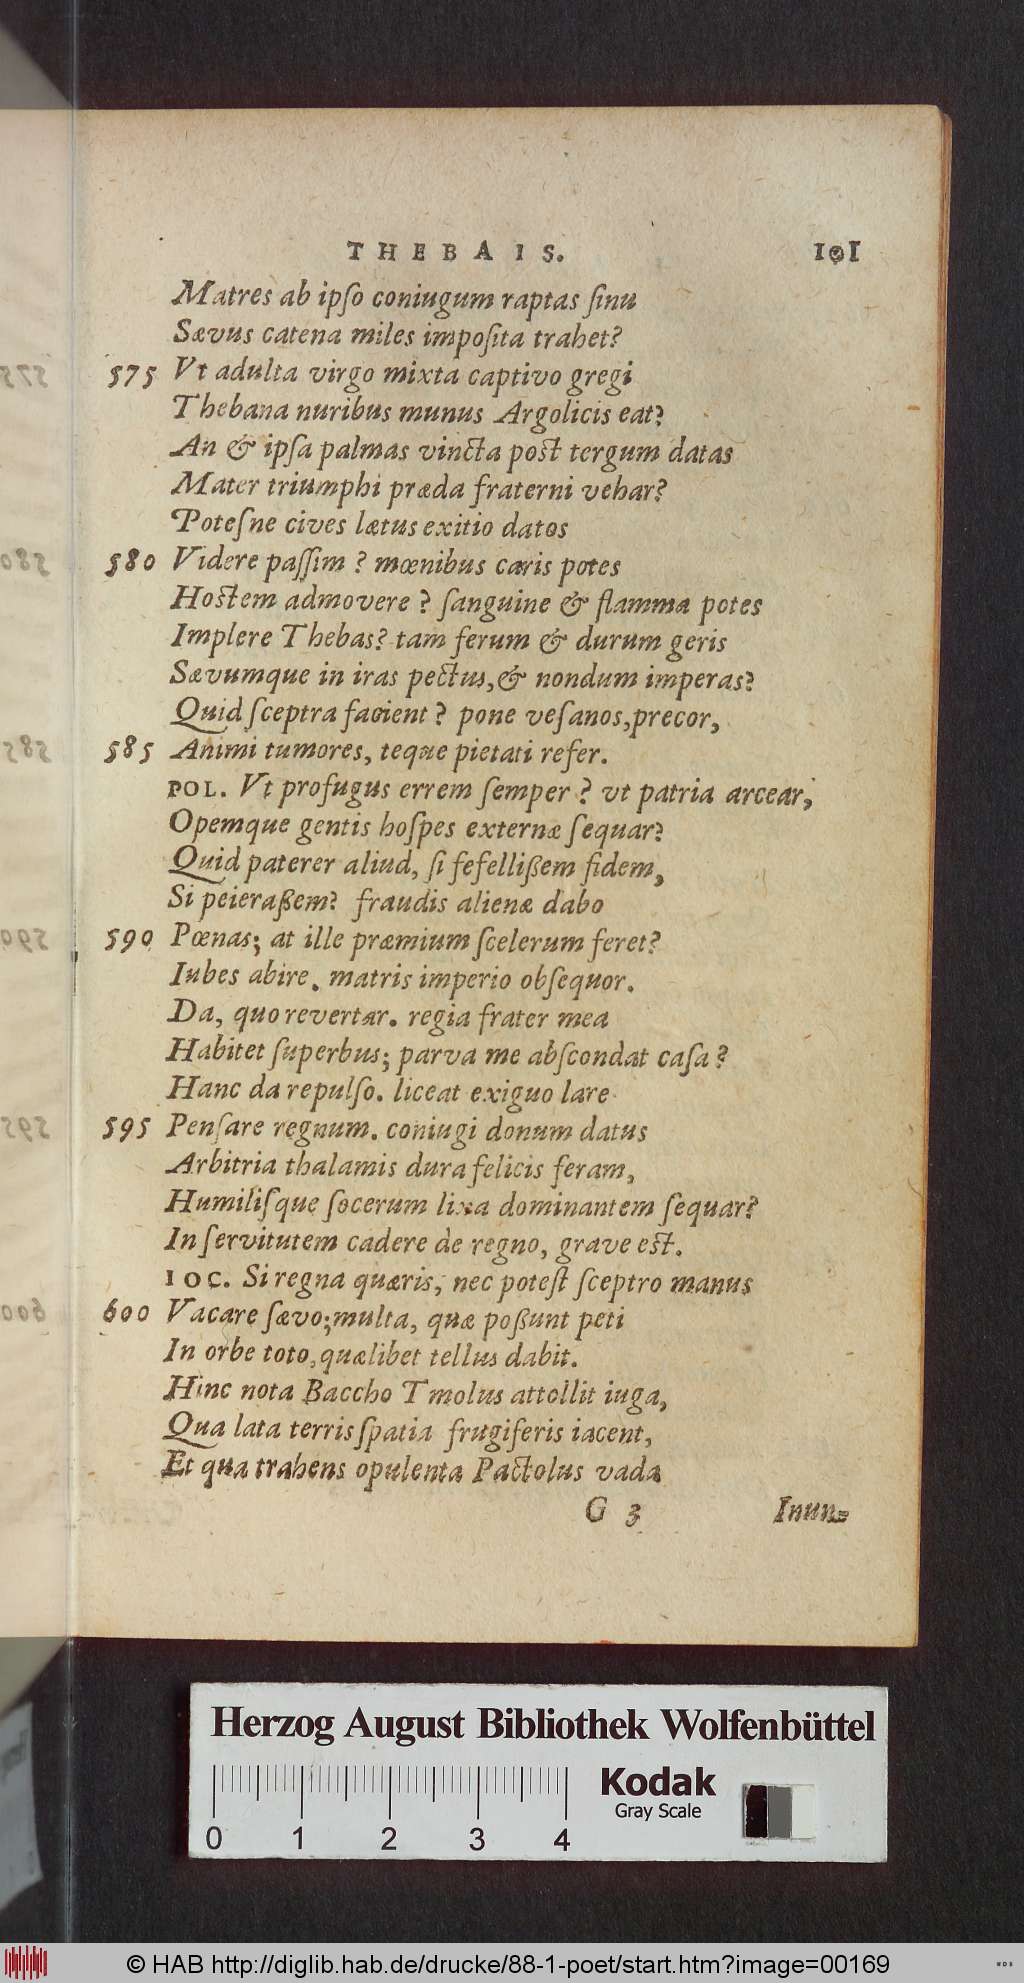 THEBAIS. 101
Matres ab ipſo coniugum raptas ſinu
Sævus catena miles impoſita trahet?
575 Vt adulta virgo mixta captivo gregi
Thebana nuribus munus Argolicis eat?
An & ipſa palmas vincta post tergum datas
Mater triumphi præda fraterni vehar?
Poteſne cives lætus exitio datos
580 Videre paſſim? mœnibus caris potes
Hostem admovere? ſanguine & flamma potes
Implere Thebas? tam ferum & durum geris
Sævumque in iras pectus, & nondum imperas?
Quid ſceptra facient? pone veſanos, precor,
585 Animi tumores, teque pietati refer.
POL. Vt profugus errem ſemper? vt patria arcear,
Opemque gentis hoſpes externæ ſequar?
Quid paterer aliud, ſi fefellißem fidem,
Si peieraßem? fraudis alienæ dabo
590 Pœnas; at ille præmium ſcelerum feret?
Iubes abire. matris imperio obſequor.
Da, quo revertar. regia frater mea
Habitet ſuperbus; parva me abſcondat caſa?
Hanc da repulſo. liceat exiguo lare
595 Penſare regnum. coniugi donum datus
Arbitria thalamis dura felicis feram,
Humiliſque ſocerum lixa dominantem ſequar?
In ſervitutem cadere de regno, grave est.
IOC. Si regna quæris, nec poteſt ſceptro manus
600 Vacare ſævo; multa, quæ poßunt peti
In orbe toto, quælibet tellus dabit.
Hinc nota Baccho Tmolus attollit iuga,
Qua lata terris ſpatia frugiferis iacent,
Et qua trahens opulenta Pactolus vada
G 3 Inun=
Herzog August Bibliothek Wolfenbüttel
Kodak
Gray Scale
0 1 2 3 4
© HAB http://diglib.hab.de/drucke/88-1-poet/start.htm?image=00169